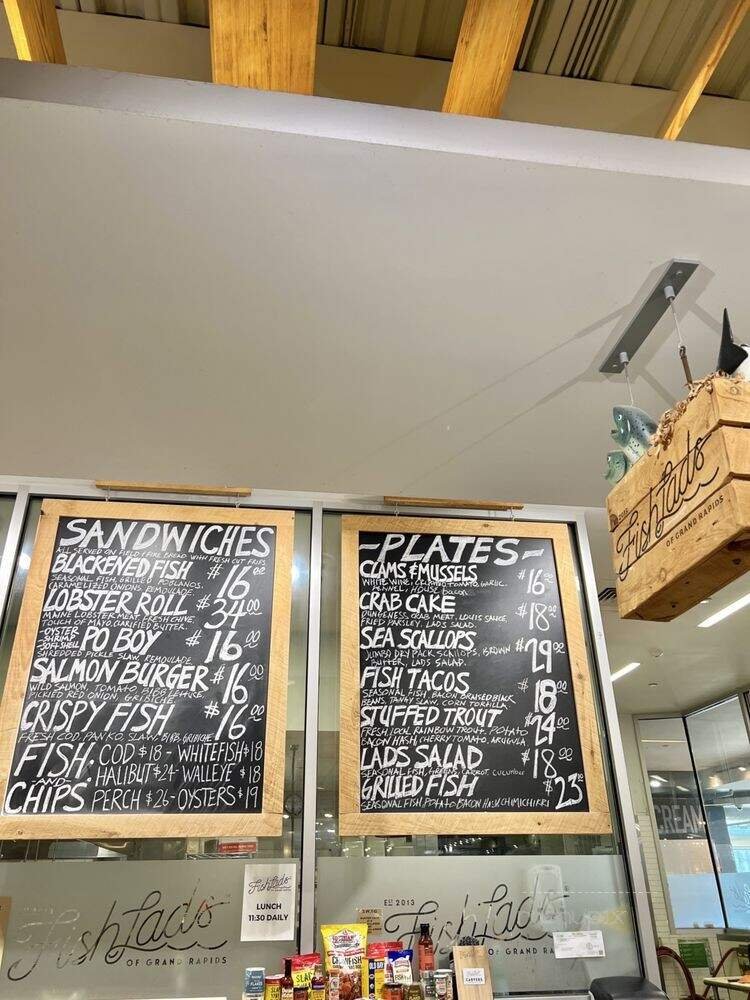 SANDWICHES
ALL SERVED ON FIELD & FIRE BREAD WITH FRESH CUT FRIES
BLACKENED FISH $16.00
SEASONAL FISH, GRILLED POBLANOS,
CARAMELIZED ONIONS, REMOULADE.
LOBSTER ROLL $34.00
MAINE LOBSTER MEAT, FRESH CHIVE,
TOUCH OF MAYO, CLARIFIED BUTTER.
-OYSTER
-SHRIMP
-SOFT SHELL
PO BOY $16.00
SHREDDED PICKLE SLAW, REMOULADE
SALMON BURGER $16.00
WILD SALMON, TOMATO, BIBB LETTUCE,
PICKLED RED ONION, GRIBICHE.
CRISPY FISH $16.00
FRESH COD, PANKO, SLAW, BIBB, GRIBICHE
FISH: COD $18 - WHITEFISH $18
-AND- HALIBUT $24 - WALLEYE $18
CHIPS PERCH $26 - OYSTERS $19
-PLATES-
CLAMS & MUSSELS $16.00
WHITE WINE, CRUSHED TOMATO, GARLIC,
FENNEL, HOUSE bacon
CRAB CAKE $18.00
DUNGENESS CRAB MEAT, LOUIS SAUCE,
FRIED PARSLEY, LADS SALAD.
SEA SCALLOPS $29.00
JUMBO DRY PACK SCALLOPS, BROWN
BUTTER, LADS SALAD.
FISH TACOS $18.00
SEASONAL FISH, BACON BRAISED BLACK
BEANS, TANGY SLAW, CORN TORTILLA
STUFFED TROUT $24.00
FRESH LOCAL RAINBOW TROUT, POTATO
BACON HASH, CHERRY TOMATO, ARUGULA
LADS SALAD $18.00
SEASONAL FISH, GREENS, CARROT, CUCUMBER
GRILLED FISH $23.00
SEASONAL FISH, POTATO BACON HASH, CHIMICHIRRI
FishLads
OF GRAND RAPIDS
CREAM
FishLads
OF GRAND RAPIDS
FishLads
LUNCH
11:30 DAILY
Est 2013
FishLads
OF GRAND RAPIDS
OLD BAY